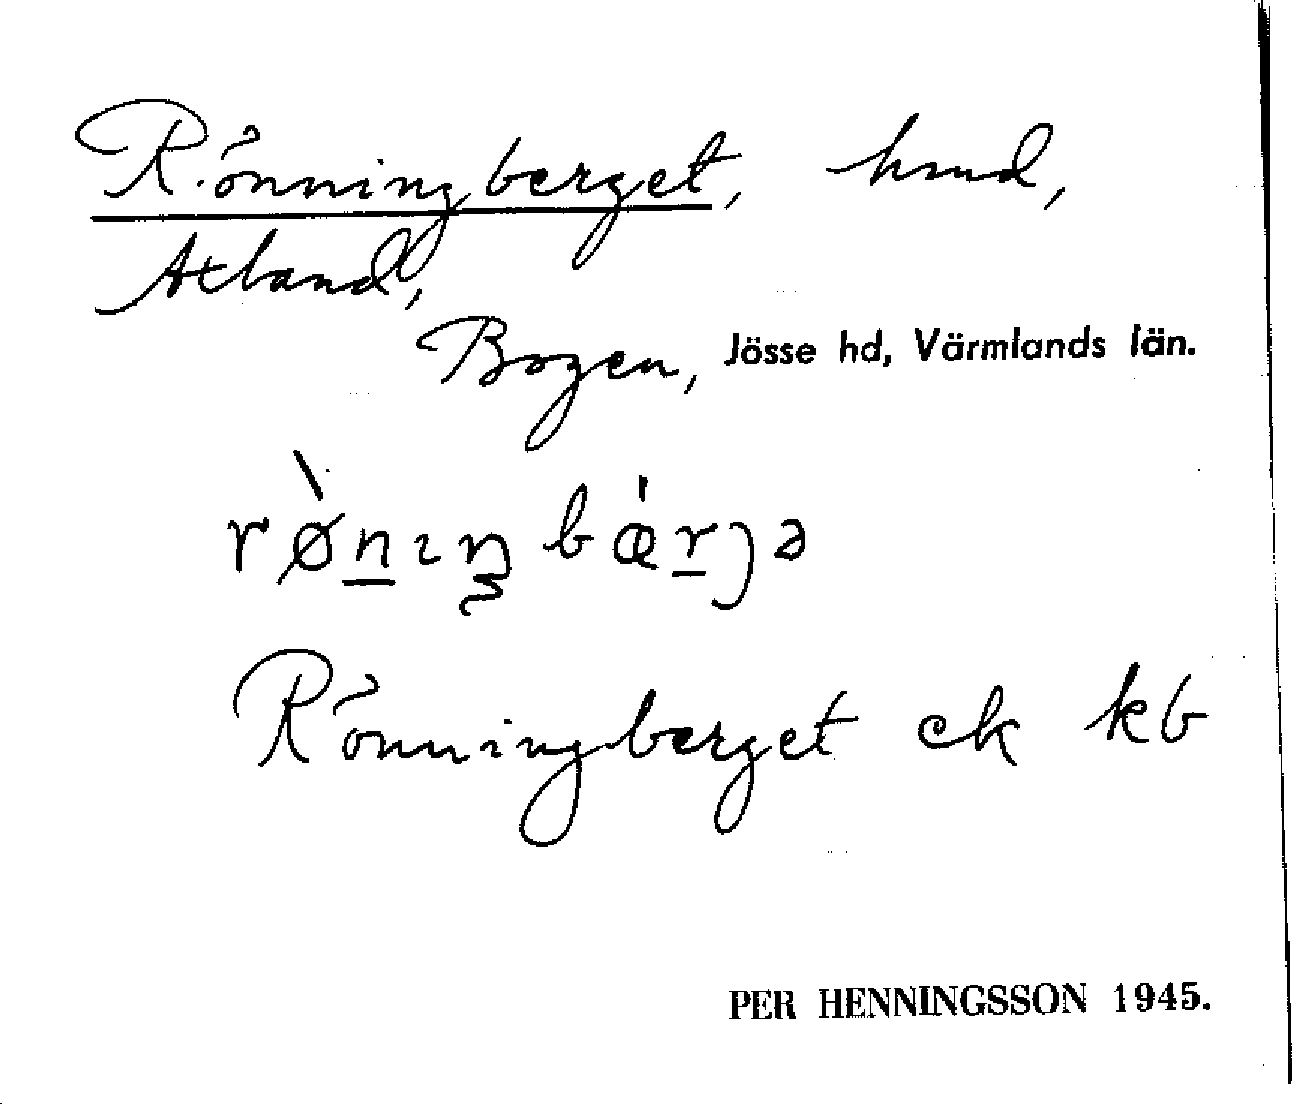 Rönningberget, hmd,
Axland,
Bogen, Jösse hd, Värmlands län.
rø̀nıŋbǽrjə
Rönningberget ek kb
PER HENNINGSSON 1945.